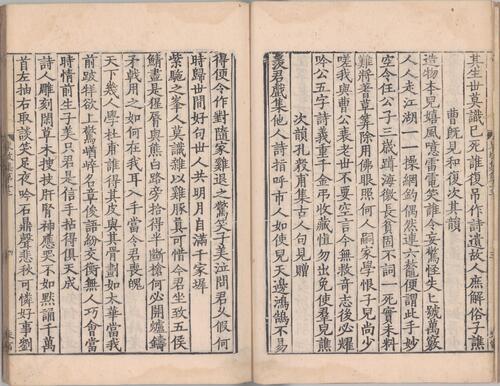 其生世莫識已死誰復吊作詩遺故人庶解俗子譙
曹旣見和復次其韻
造物本兒嬉風噫雷電笑誰令妄驚怪失匕號萬竅
人人走江湖一一操網釣偶然連六鼇便謂此手妙
空令任公子三歲蹲海徼長貧固不詞一死實未料
難將蓍草算除用佛眼照何人嗣家學恨子兒尚少
嗟我與曹公衰老世不要空言今無救奇志後必耀
吟公五字詩義重千金弔收藏愼勿出免使羣兒誚
次韻孔毅甫集古人句見贈
羨君戲集他人詩指呼市人如使兒天邊鴻鵠不易
得便令作對隨家雞退之驚笑子美泣問君久假何
時歸世間好句世人共明月自滿千家墀
紫駞之峯人莫識雜以雞豚真可惜今君坐致五侯
鯖盡是猩脣與熊白路旁拾得半斷槍何必開爐鑄
矛戟用之如何在我耳入手當令君喪魄
天下幾人學杜甫誰得其皮與其骨劃如太華當我
前跛牂欲上驚崷崒名章俊語紛交衡無人巧會當
時情前生子美只君是信手拈得俱天成
詩人雕刻閑草木搜抉肝腎神應哭不如默誦千萬
首左抽右取談笑足夜吟石鼎聲悲秋可憐好事劉